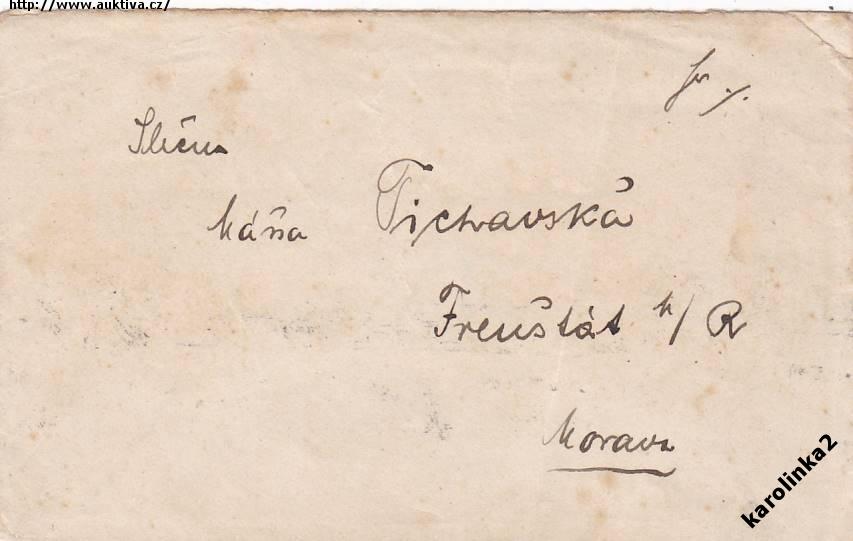 http://www.auktiva.cz/
Slečna
Máňa Tichavská
Frenštát p/R
Morava
karolinka2